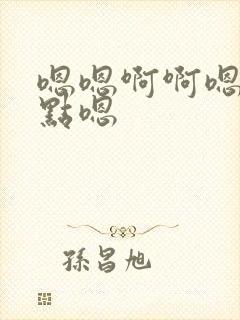 嗯嗯啊啊嗯
點嗯
孫昌旭